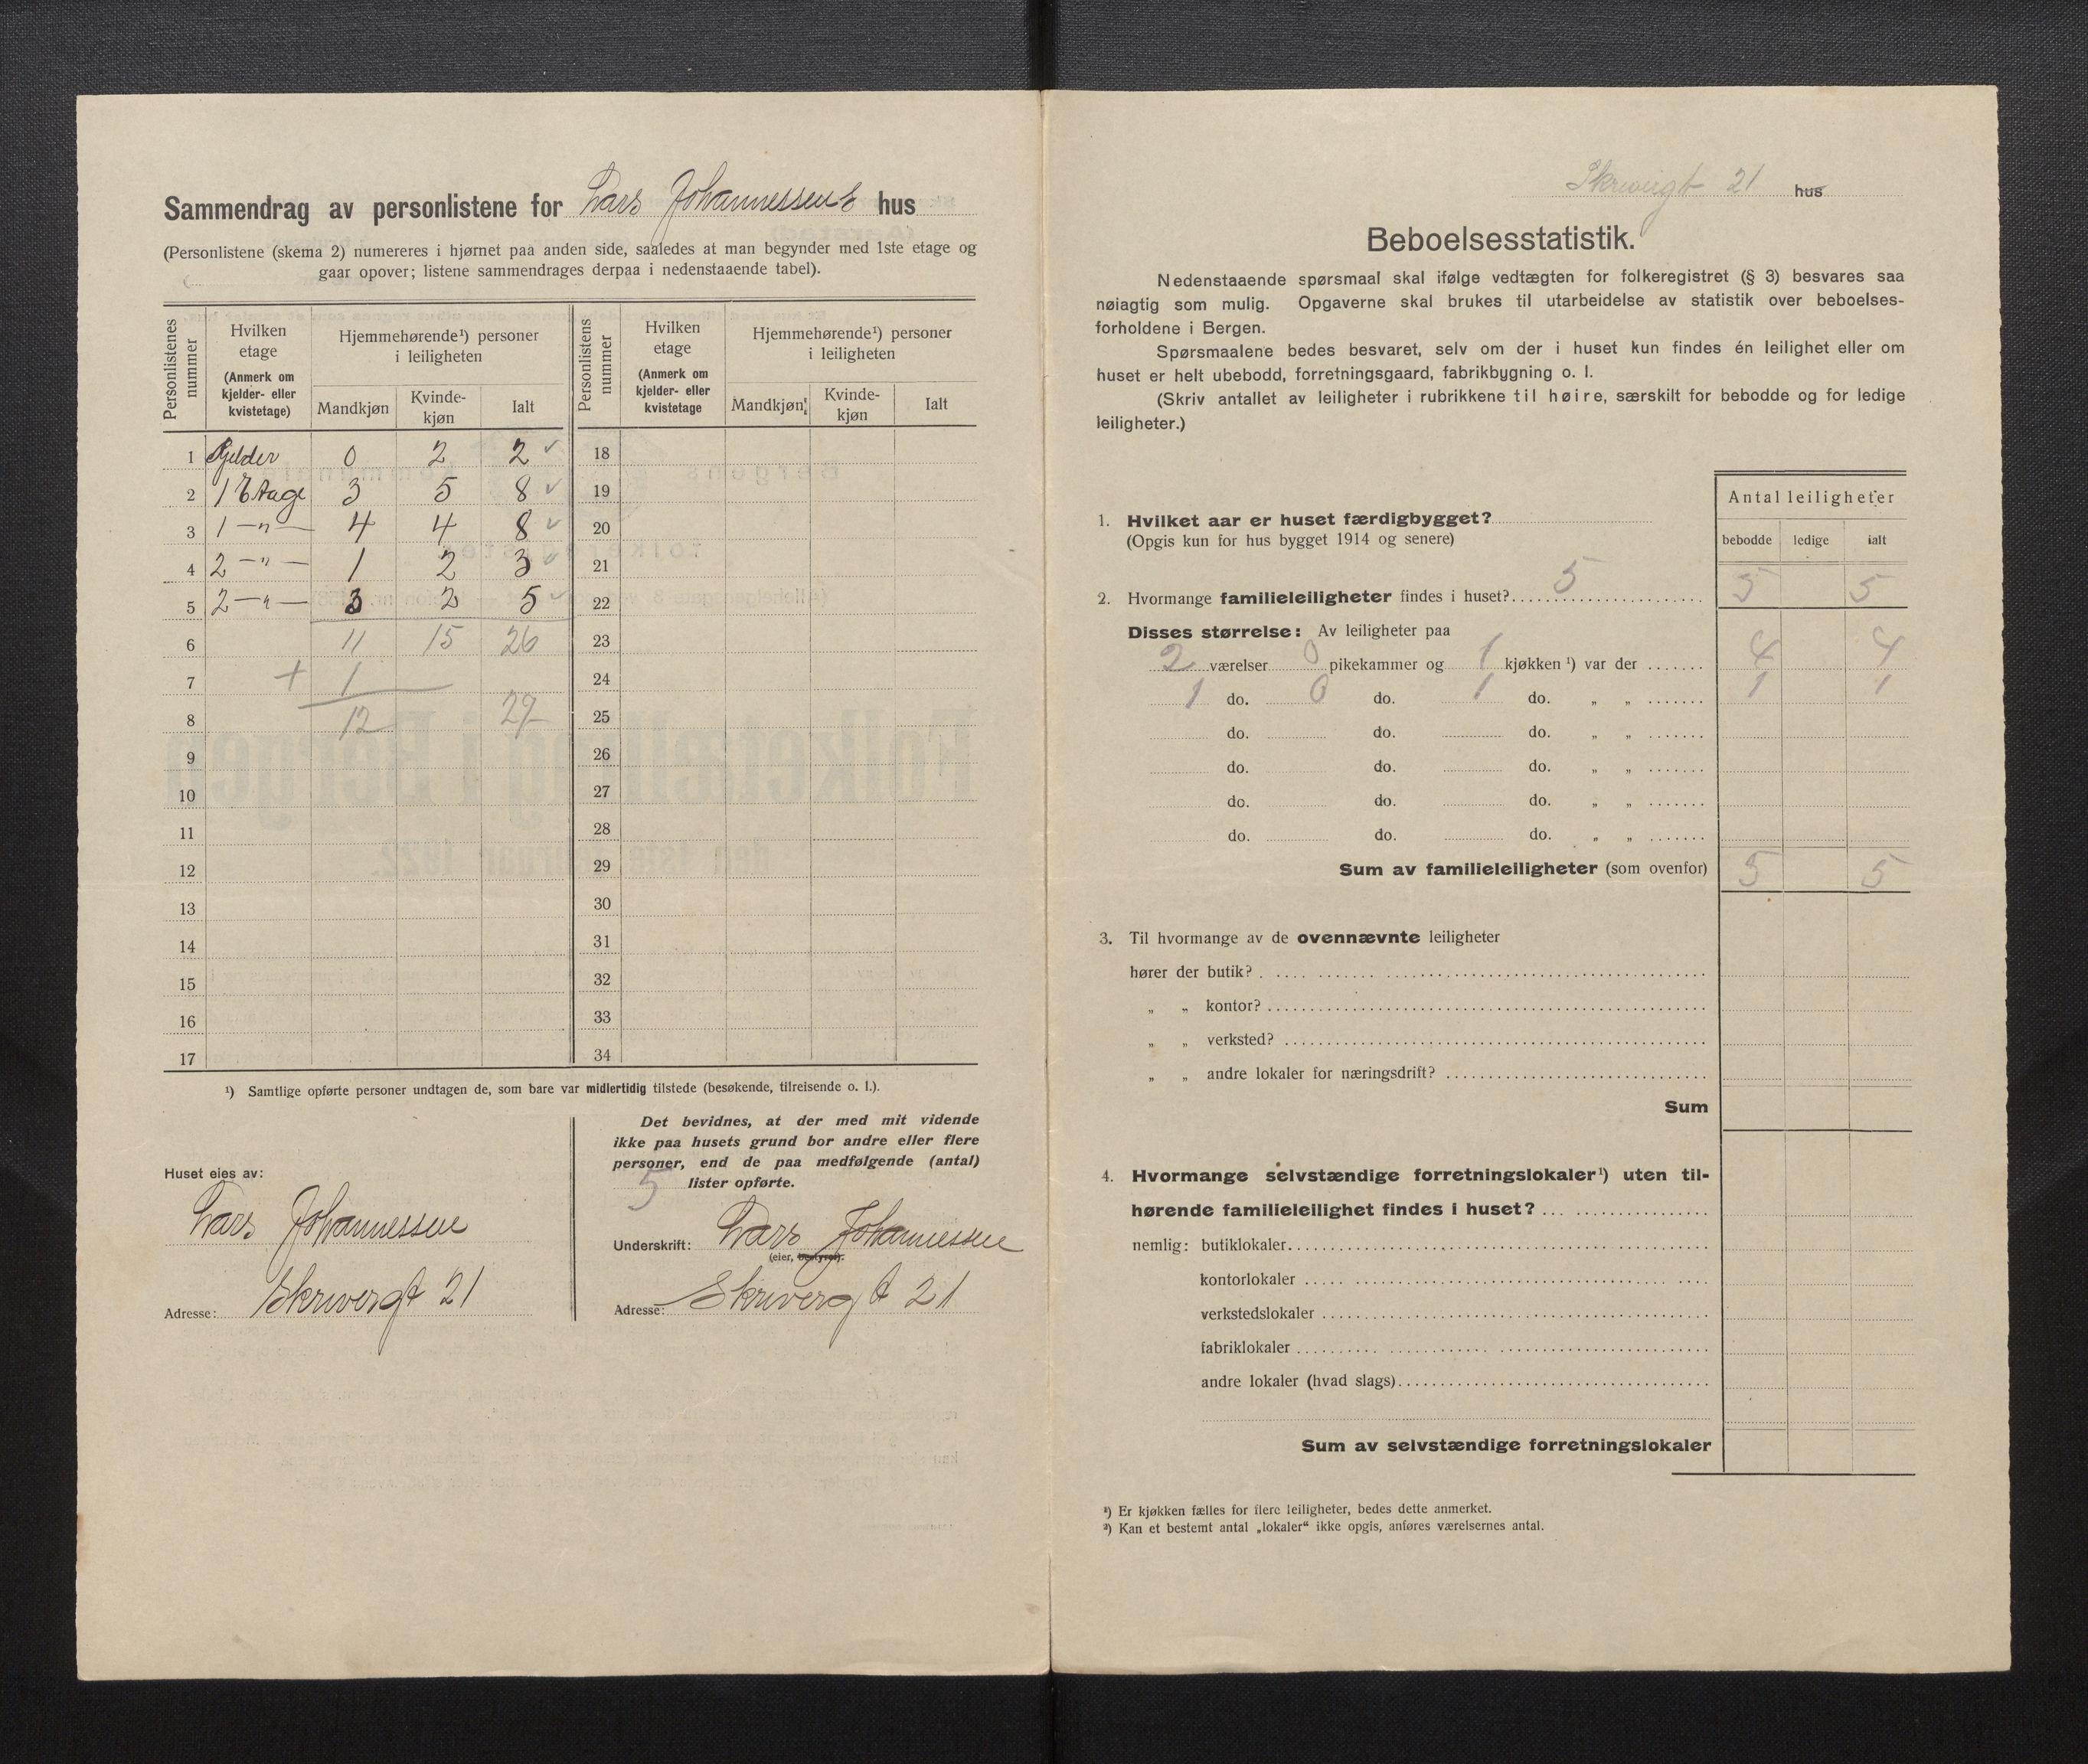 Sammendrag av personlistene for Lars Johannessens hus
(Personlistene (skema 2) numereres i hjørnet paa anden side, saaledes at man begynder med 1ste etage og
gaar opover; listene sammendrages derpaa i nedenstaaende tabel).
Personlistenes nummer | Hvilken etage (Anmerk om kjelder- eller kvistetage) | Hjemmehørende¹) personer i leiligheten | Personlistens nummer | Hvilken etage (Anmerk om kjelder- eller kvistetage | Hjemmehørende¹) personer i leiligheten
Mandkjøn | Kvinde-kjøn | Ialt | Mandkjøn | Kvinde-kjøn | Ialt
1 Kjelder 0 2 2 ✓ 18
2 1 Etage 3 5 8 ✓ 19
3 1 —"— 4 4 8 ✓ 20
4 2 —"— 1 2 3 ✓ 21
5 2 —"— 3 2 5 ✓ 22
6 11 15 26 23
7 + 1 24
8 12 27 25
9 26
10 27
11 28
12 29
13 30
14 31
15 32
16 33
17 34
¹) Samtlige opførte personer undtagen de, som bare var midlertidig tilstede (besøkende, tilreisende o. l.).
Huset eies av:
Lars Johannessen
Adresse: Skrivergt 21
Det bevidnes, at der med mit vidende
ikke paa husets grund bor andre eller flere
personer, end de paa medfølgende (antal)
5 lister opførte.
Underskrift: Lars Johannessen
(eier, bestyrer).
Adresse: Skrivergt 21
Skrivergt 21 hus
Beboelsesstatistik.
Nedenstaaende spørsmaal skal ifølge vedtægten for folkeregistret (§ 3) besvares saa
nøiagtig som mulig. Opgaverne skal brukes til utarbeidelse av statistik over beboelses-
forholdene i Bergen.
Spørsmaalene bedes besvaret, selv om der i huset kun findes én leilighet eller om
huset er helt ubebodd, forretningsgaard, fabrikbygning o. l.
(Skriv antallet av leiligheter i rubrikkene til høire, særskilt for bebodde og for ledige
leiligheter.)
Antal leiligheter
bebodde ledige ialt
1. Hvilket aar er huset færdigbygget?
(Opgis kun for hus bygget 1914 og senere)
2. Hvormange familieleiligheter findes i huset? 5 5 5
Disses størrelse: Av leiligheter paa
2 værelser 0 pikekammer og 1 kjøkken ¹) var der ....... 4 4
1 do. 0 do. 1 do. „ „ ....... 1 1
do. do. do. „ „ .......
do. do. do. „ „ .......
do. do. do. „ „ .......
do. do. do. „ „ .......
Sum av familieleiligheter (som ovenfor) 5 5
3. Til hvormange av de ovennævnte leiligheter
hører der butik?
„ „ kontor?
„ „ verksted?
„ „ andre lokaler for næringsdrift?
Sum
4. Hvormange selvstændige forretningslokaler¹) uten til-
hørende familieleilighet findes i huset?
nemlig: butiklokaler
kontorlokaler
verkstedslokaler
fabriklokaler
andre lokaler (hvad slags)
Sum av selvstændige forretningslokaler
¹) Er kjøkken fælles for flere leiligheter, bedes dette anmerket.
²) Kan et bestemt antal „lokaler“ ikke opgis, anføres værelsernes antal.